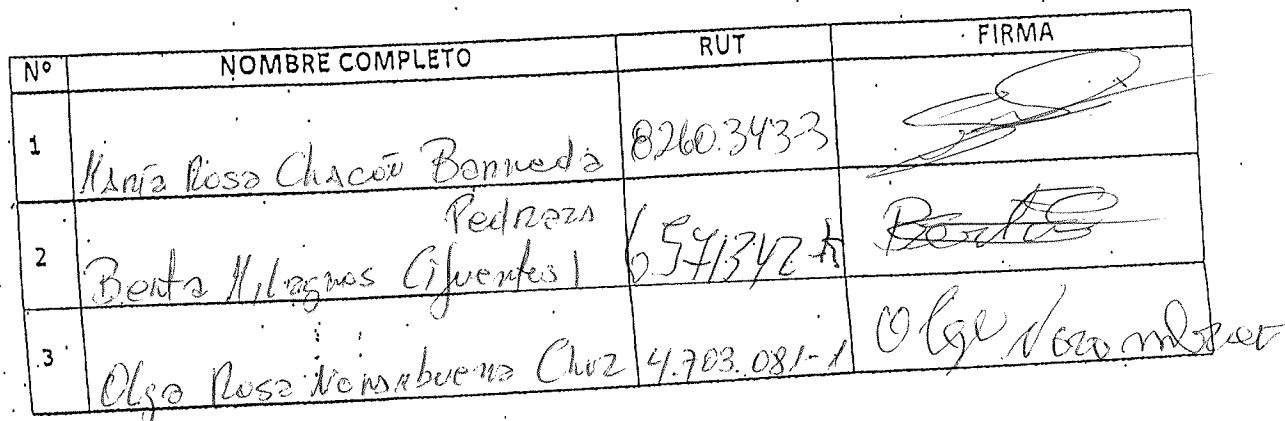 Nº NOMBRE COMPLETO RUT FIRMA
1 María Rosa Chacón Banneda 8260.343-3
Pedraza
2 Berta Milagros Cifuentes 6.571342-k Berta
3 Olga Rosa Norambuena Cruz 4.703.081-1 Olga Norambuena